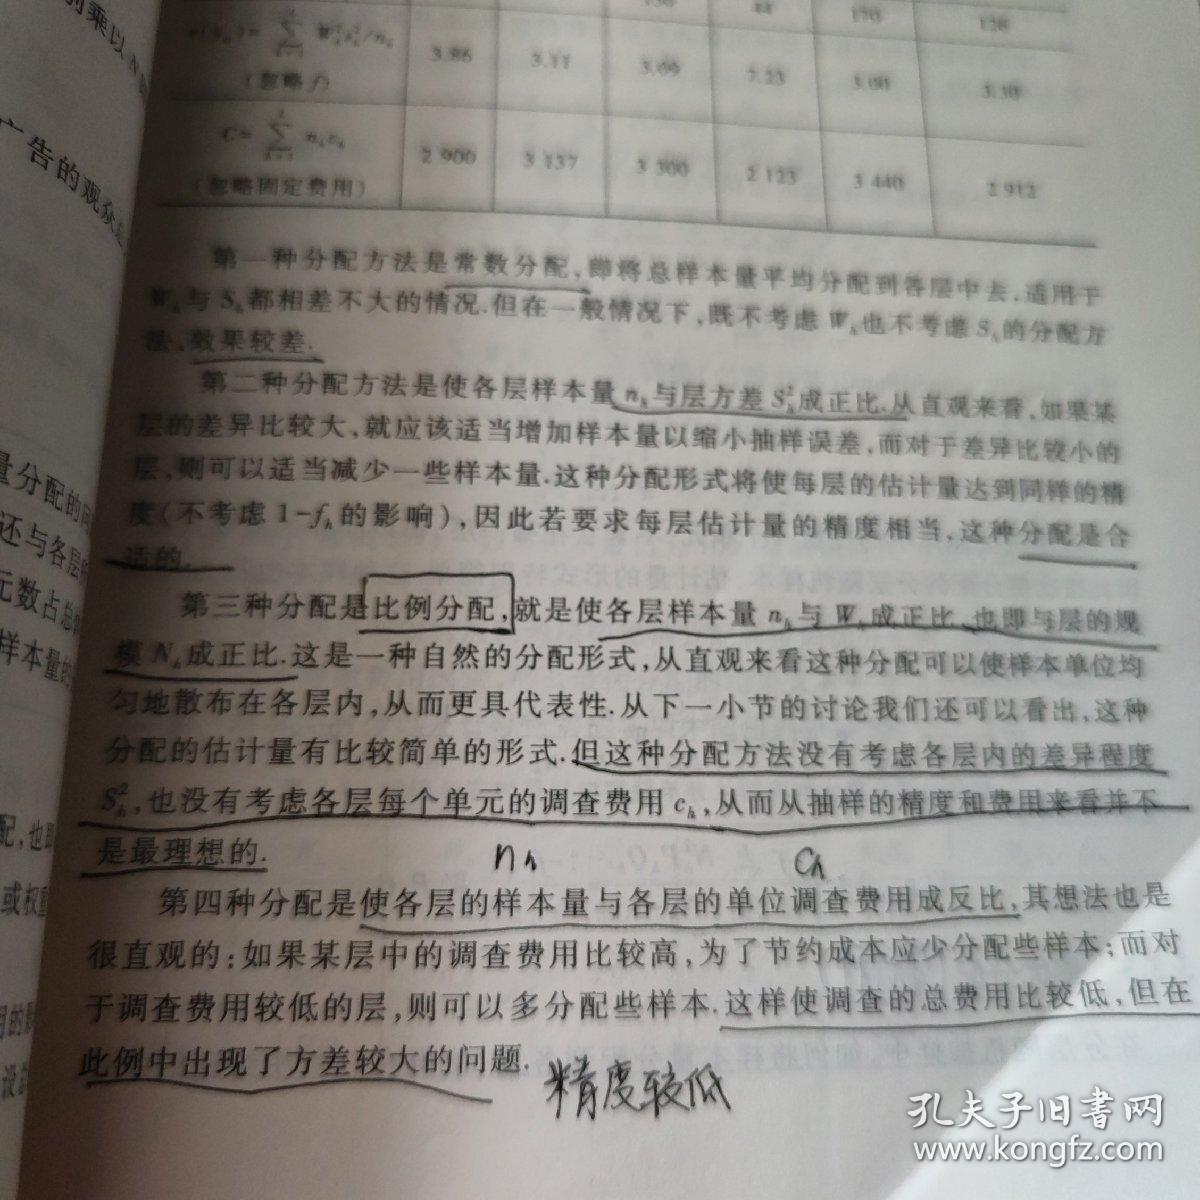 别乘以
广告的观众
量分配的问
还与各层
元数占总
样本量的
配,也即
或权重
用的
设
44 170 128
(忽略f)
3.86 3.11 3.09 7.23 3.00 3.30
(忽略固定费用)
2 900 3 137 3 300 2 123 3 440 2 912
第一种分配方法是常数分配,即将总样本量平均分配到各层中去,适用于
Wₕ与Sₕ都相差不大的情况.但在一般情况下,既不考虑Wₕ也不考虑Sₕ的分配方
法,效果较差.
第二种分配方法是使各层样本量nₕ与层方差Sₕ²成正比.从直观来看,如果某
层的差异比较大,就应该适当增加样本量以缩小抽样误差,而对于差异比较小的
层,则可以适当减少一些样本量.这种分配形式将使每层的估计量达到同样的精
度(不考虑1-fₕ的影响),因此若要求每层估计量的精度相当,这种分配是合
适的.
第三种分配是比例分配,就是使各层样本量nₕ与Wₕ成正比,也即与层的规
模Nₕ成正比.这是一种自然的分配形式,从直观来看这种分配可以使样本单位均
匀地散布在各层内,从而更具代表性.从下一小节的讨论我们还可以看出,这种
分配的估计量有比较简单的形式.但这种分配方法没有考虑各层内的差异程度
Sₕ²,也没有考虑各层每个单元的调查费用cₕ,从而从抽样的精度和费用来看并不
是最理想的.
nₕ cₕ
第四种分配是使各层的样本量与各层的单位调查费用成反比,其想法也是
很直观的:如果某层中的调查费用比较高,为了节约成本应少分配些样本;而对
于调查费用较低的层,则可以多分配些样本.这样使调查的总费用比较低,但在
此例中出现了方差较大的问题.
精度较低
孔夫子旧书网
www.kongfz.com